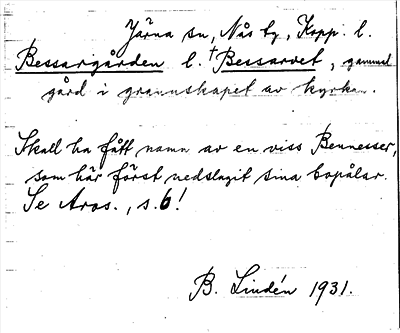 Järna sn, Nås by, Kopp. l.
Bessargården l. †Bessarvet, gammal
gård i grannskapet av kyrkan.
Skall ha fått namn av en viss Bennesser,
som här först nedslagit sina bopålar.
Se Aros., s. 6!
B. Lindén 1931.